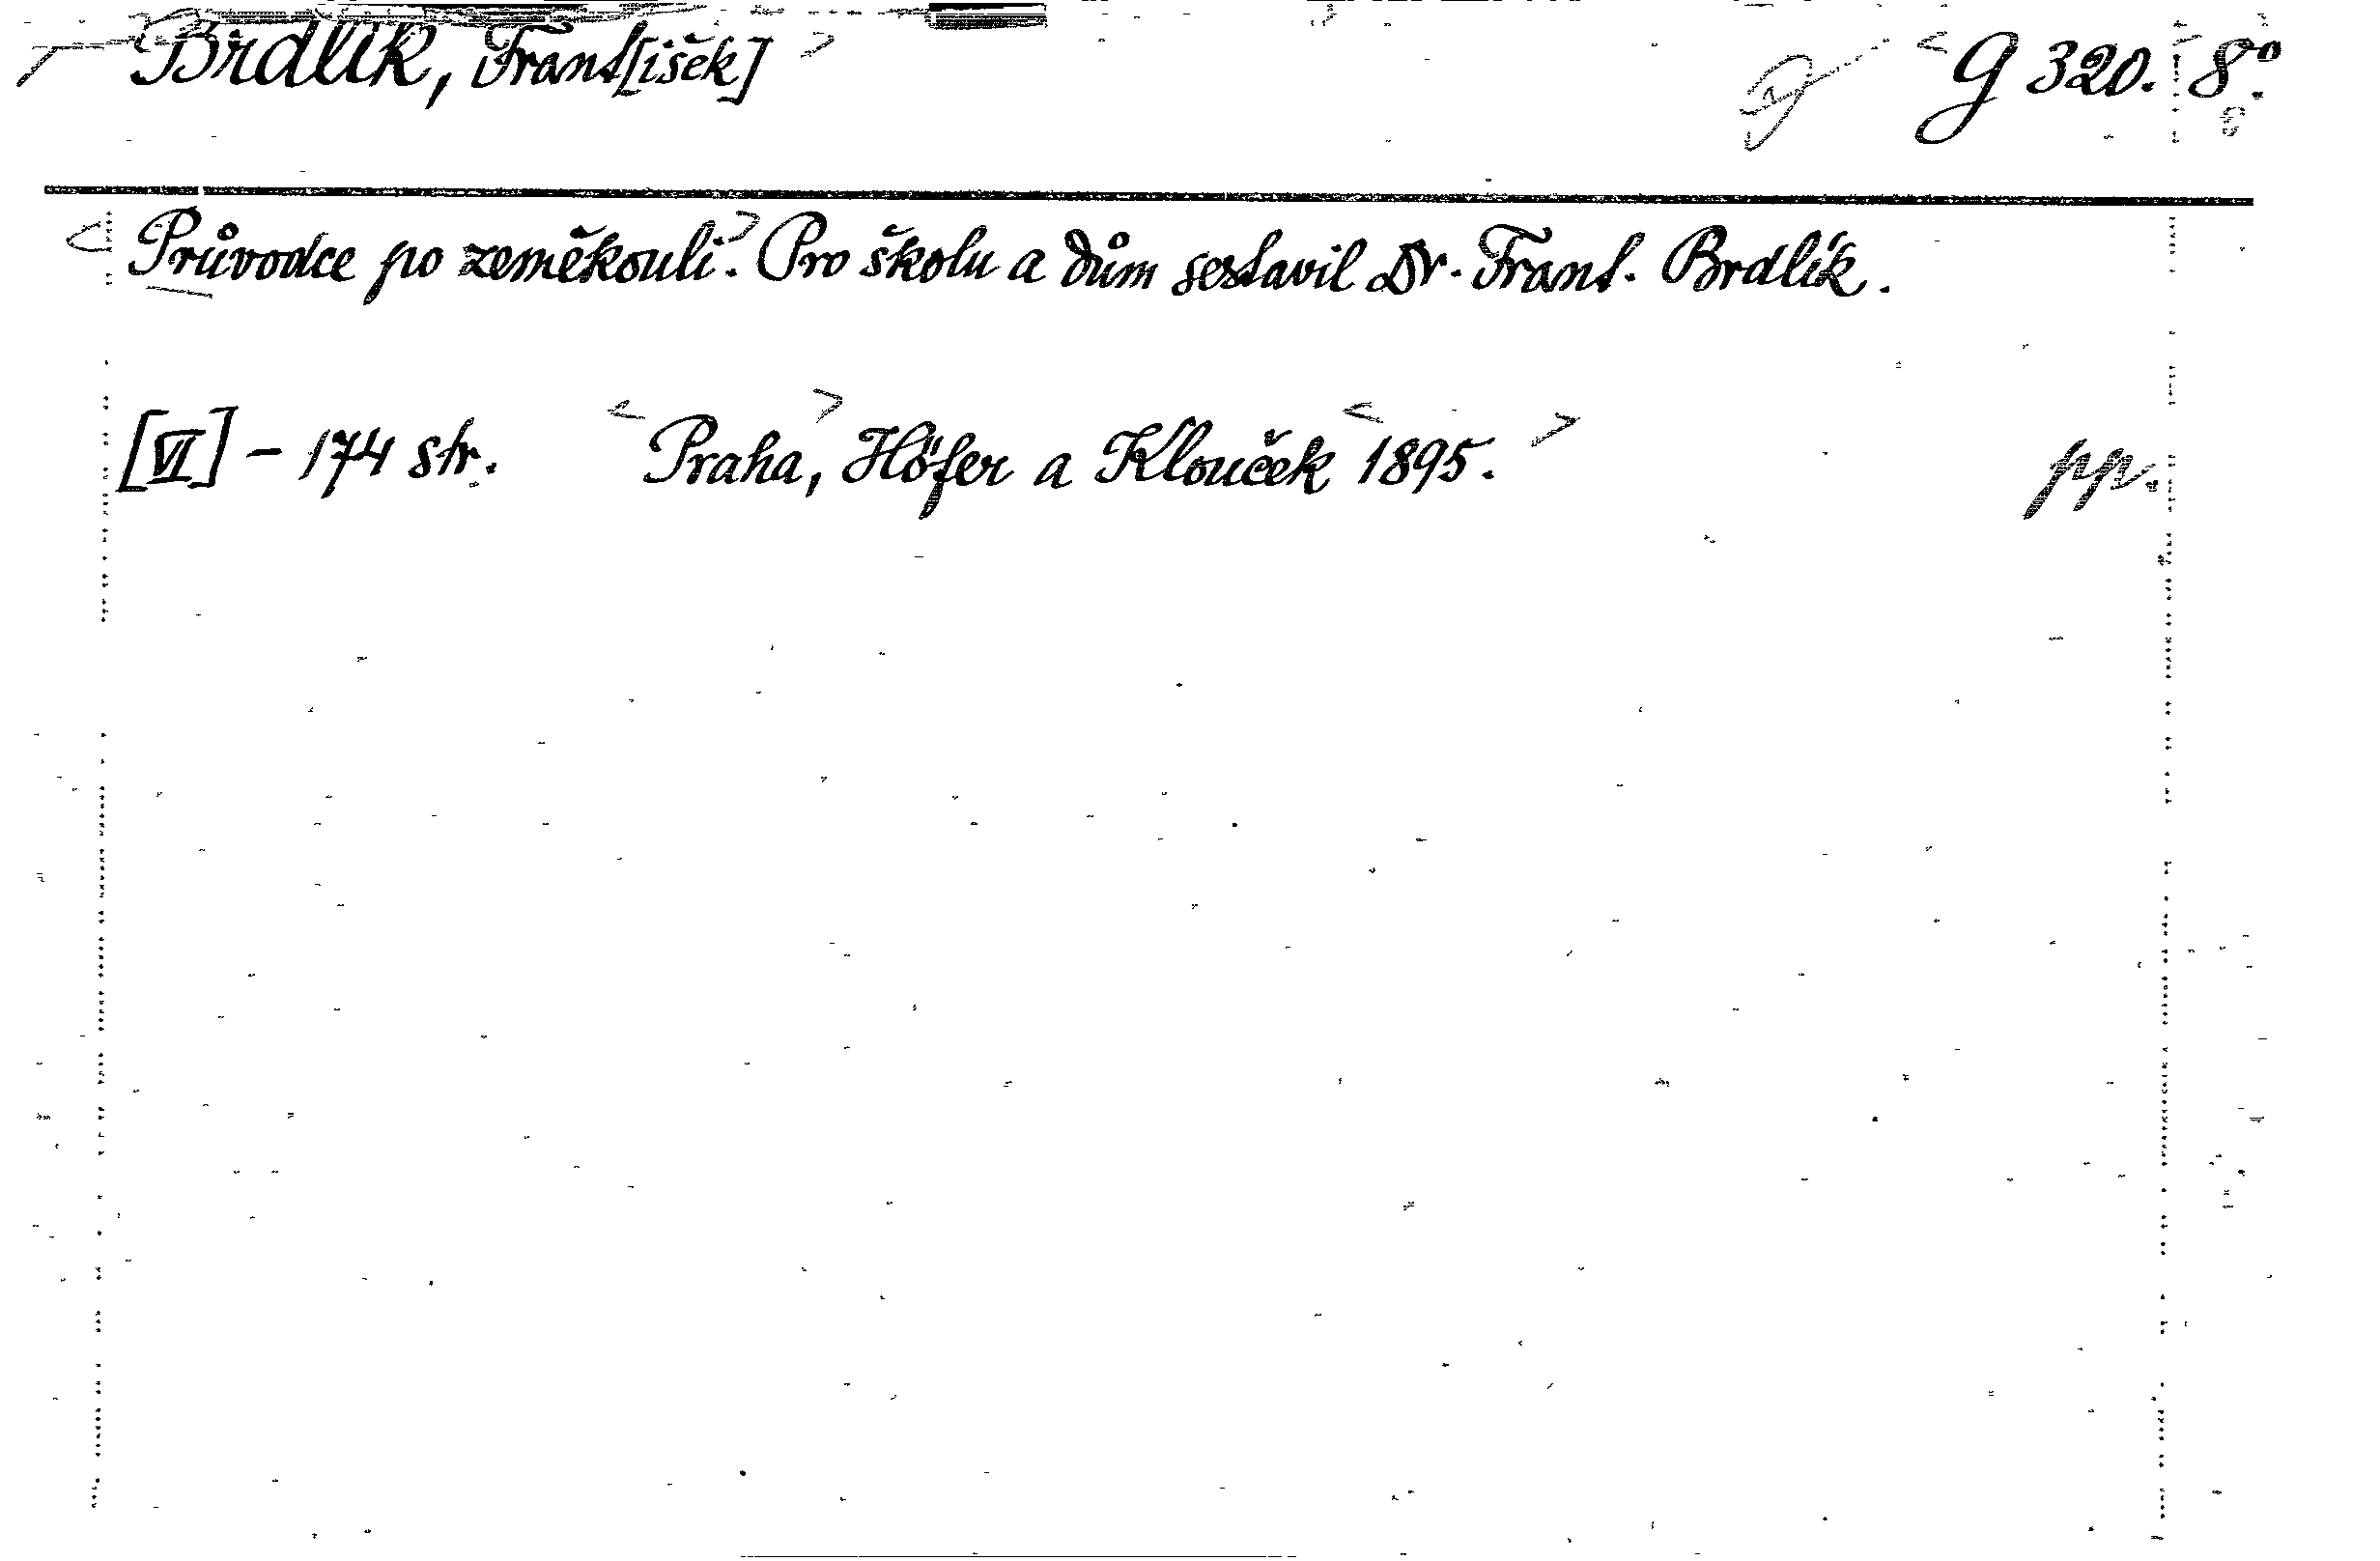 Brdlík, Frant[išek] G 320. 8°.
Průvodce po zeměkouli. Pro školu a dům sestavil Dr. Frant. Brdlík.
[VI] - 174 str. Praha, Höfer a Klouček 1895. pp.